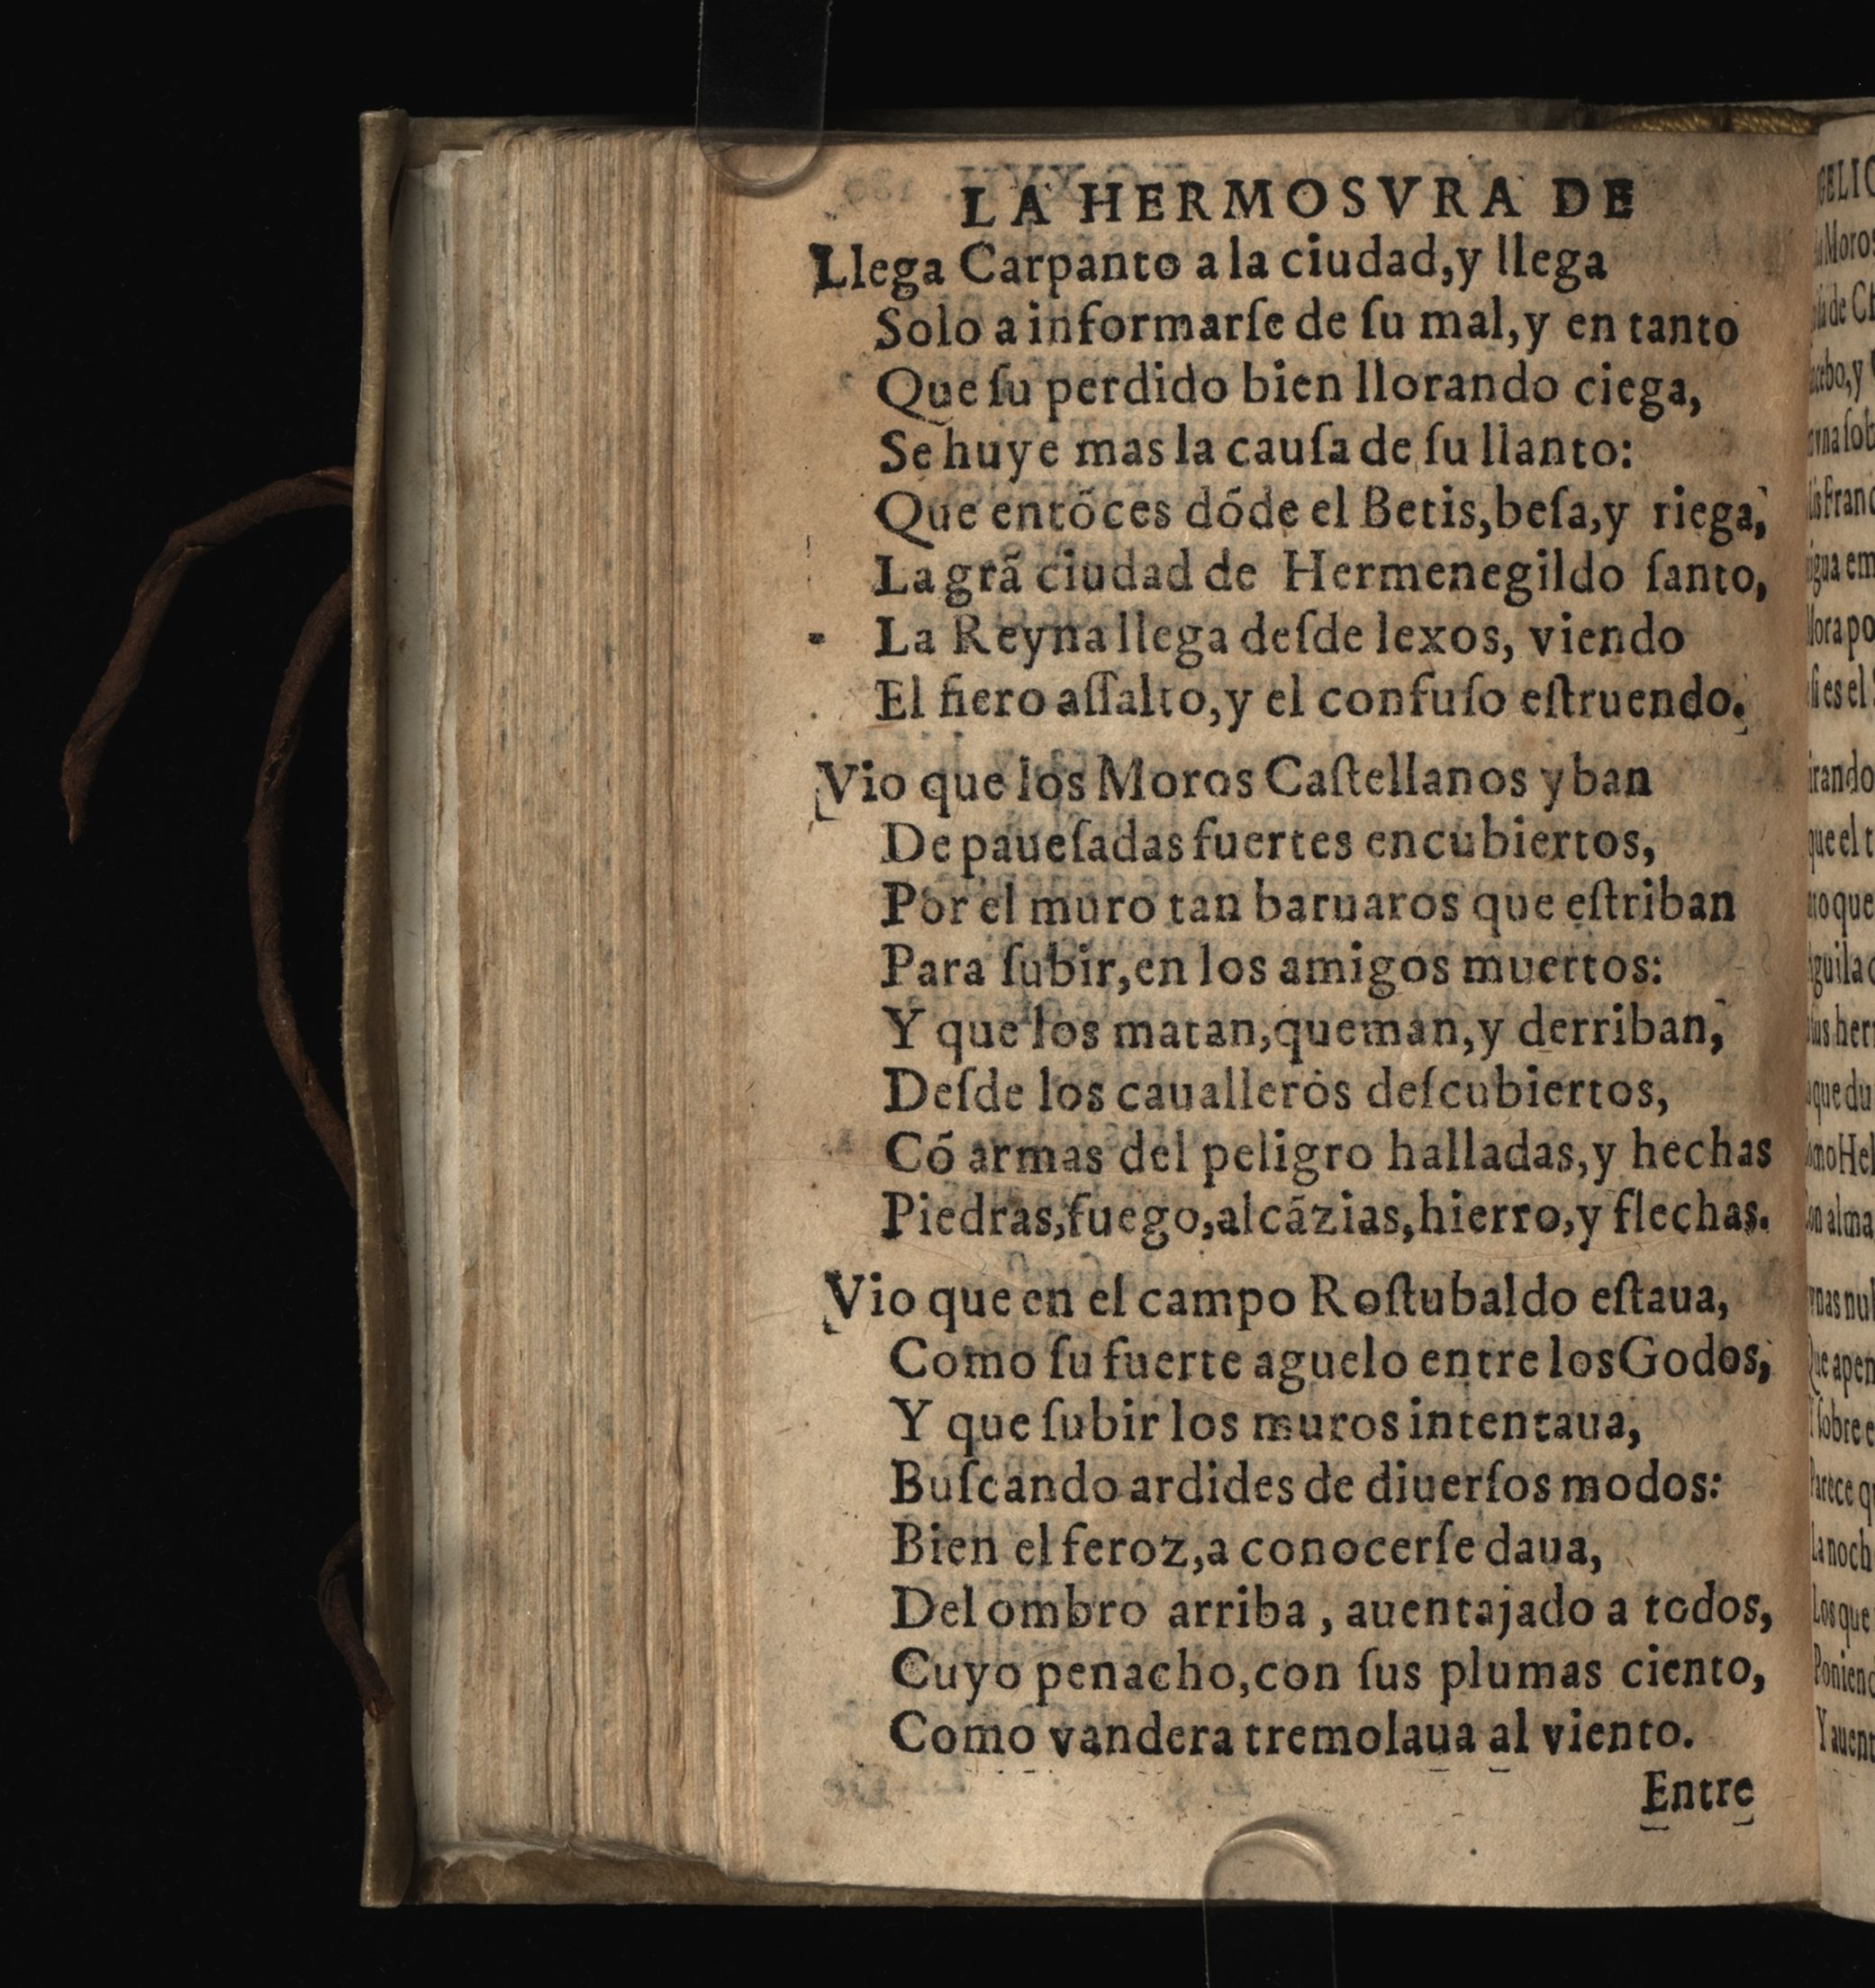 LA HERMOSVRA DE
Llega Carpanto a la ciudad, y llega
Solo a informarſe de ſu mal, y en tanto
Que ſu perdido bien llorando ciega,
Se huye mas la cauſa de ſu llanto:
Que entõces dóde el Betis, beſa, y riega,
La grã ciudad de Hermenegildo ſanto,
La Reyna llega deſde lexos, viendo
El fiero aſſalto, y el confuſo eſtruendo.
Vio que los Moros Caſtellanos yban
De paueſadas fuertes encubiertos,
Por el muro tan baruaros que eſtriban
Para ſubir, en los amigos muertos:
Y que los matan, queman, y derriban,
Deſde los caualleros deſcubiertos,
Có armas del peligro halladas, y hechas
Piedras, fuego, alcãzias, hierro, y flechas.
Vio que en el campo Roſtubaldo eſtaua,
Como ſu fuerte aguelo entre los Godos,
Y que ſubir los muros intentaua,
Buſcando ardides de diuerſos modos:
Bien el feroz, a conocerſe daua,
Del ombro arriba, auentajado a todos,
Cuyo penacho, con ſus plumas ciento,
Como vandera tremolaua al viento.
Entre